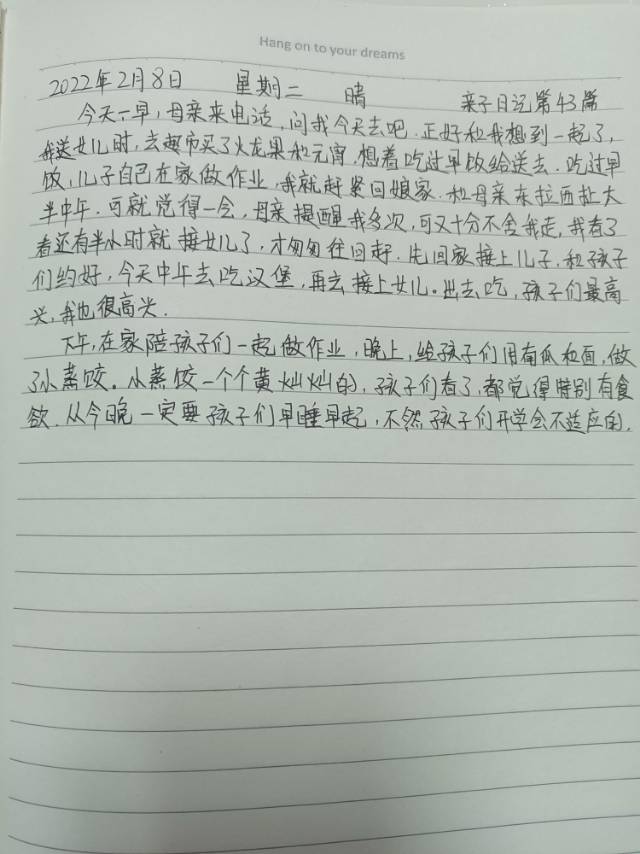 Hang on to your dreams
2022年2月8日 星期二 晴 亲子日记第43篇
今天一早,母亲来电话,问我今天去吧.正好和我想到一起了,
我送女儿时,去超市买了火龙果和元宵.想着吃过早饭给送去.吃过早
饭,儿子自己在家做作业,我就赶紧回娘家.和母亲东拉西扯大
半中午.可就觉得一会,母亲提醒我多次,可又十分不舍我走,我看了
看还有半小时就接女儿了,才匆匆往回赶.先回家接上儿子,和孩子
们约好,今天中午去吃汉堡,再去接上女儿。出去吃,孩子们最高
兴,我也很高兴.
下午,在家陪孩子们一起做作业,晚上,给孩子们用南瓜和面,做
了小蒸饺。小蒸饺一个个黄灿灿的,孩子们看了,都觉得特别有食
欲.从今晚一定要孩子们早睡早起,不然孩子们开学会不适应的.